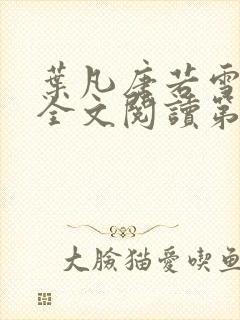 葉凡唐若雪
全文閱讀第
大臉猫愛喫魚